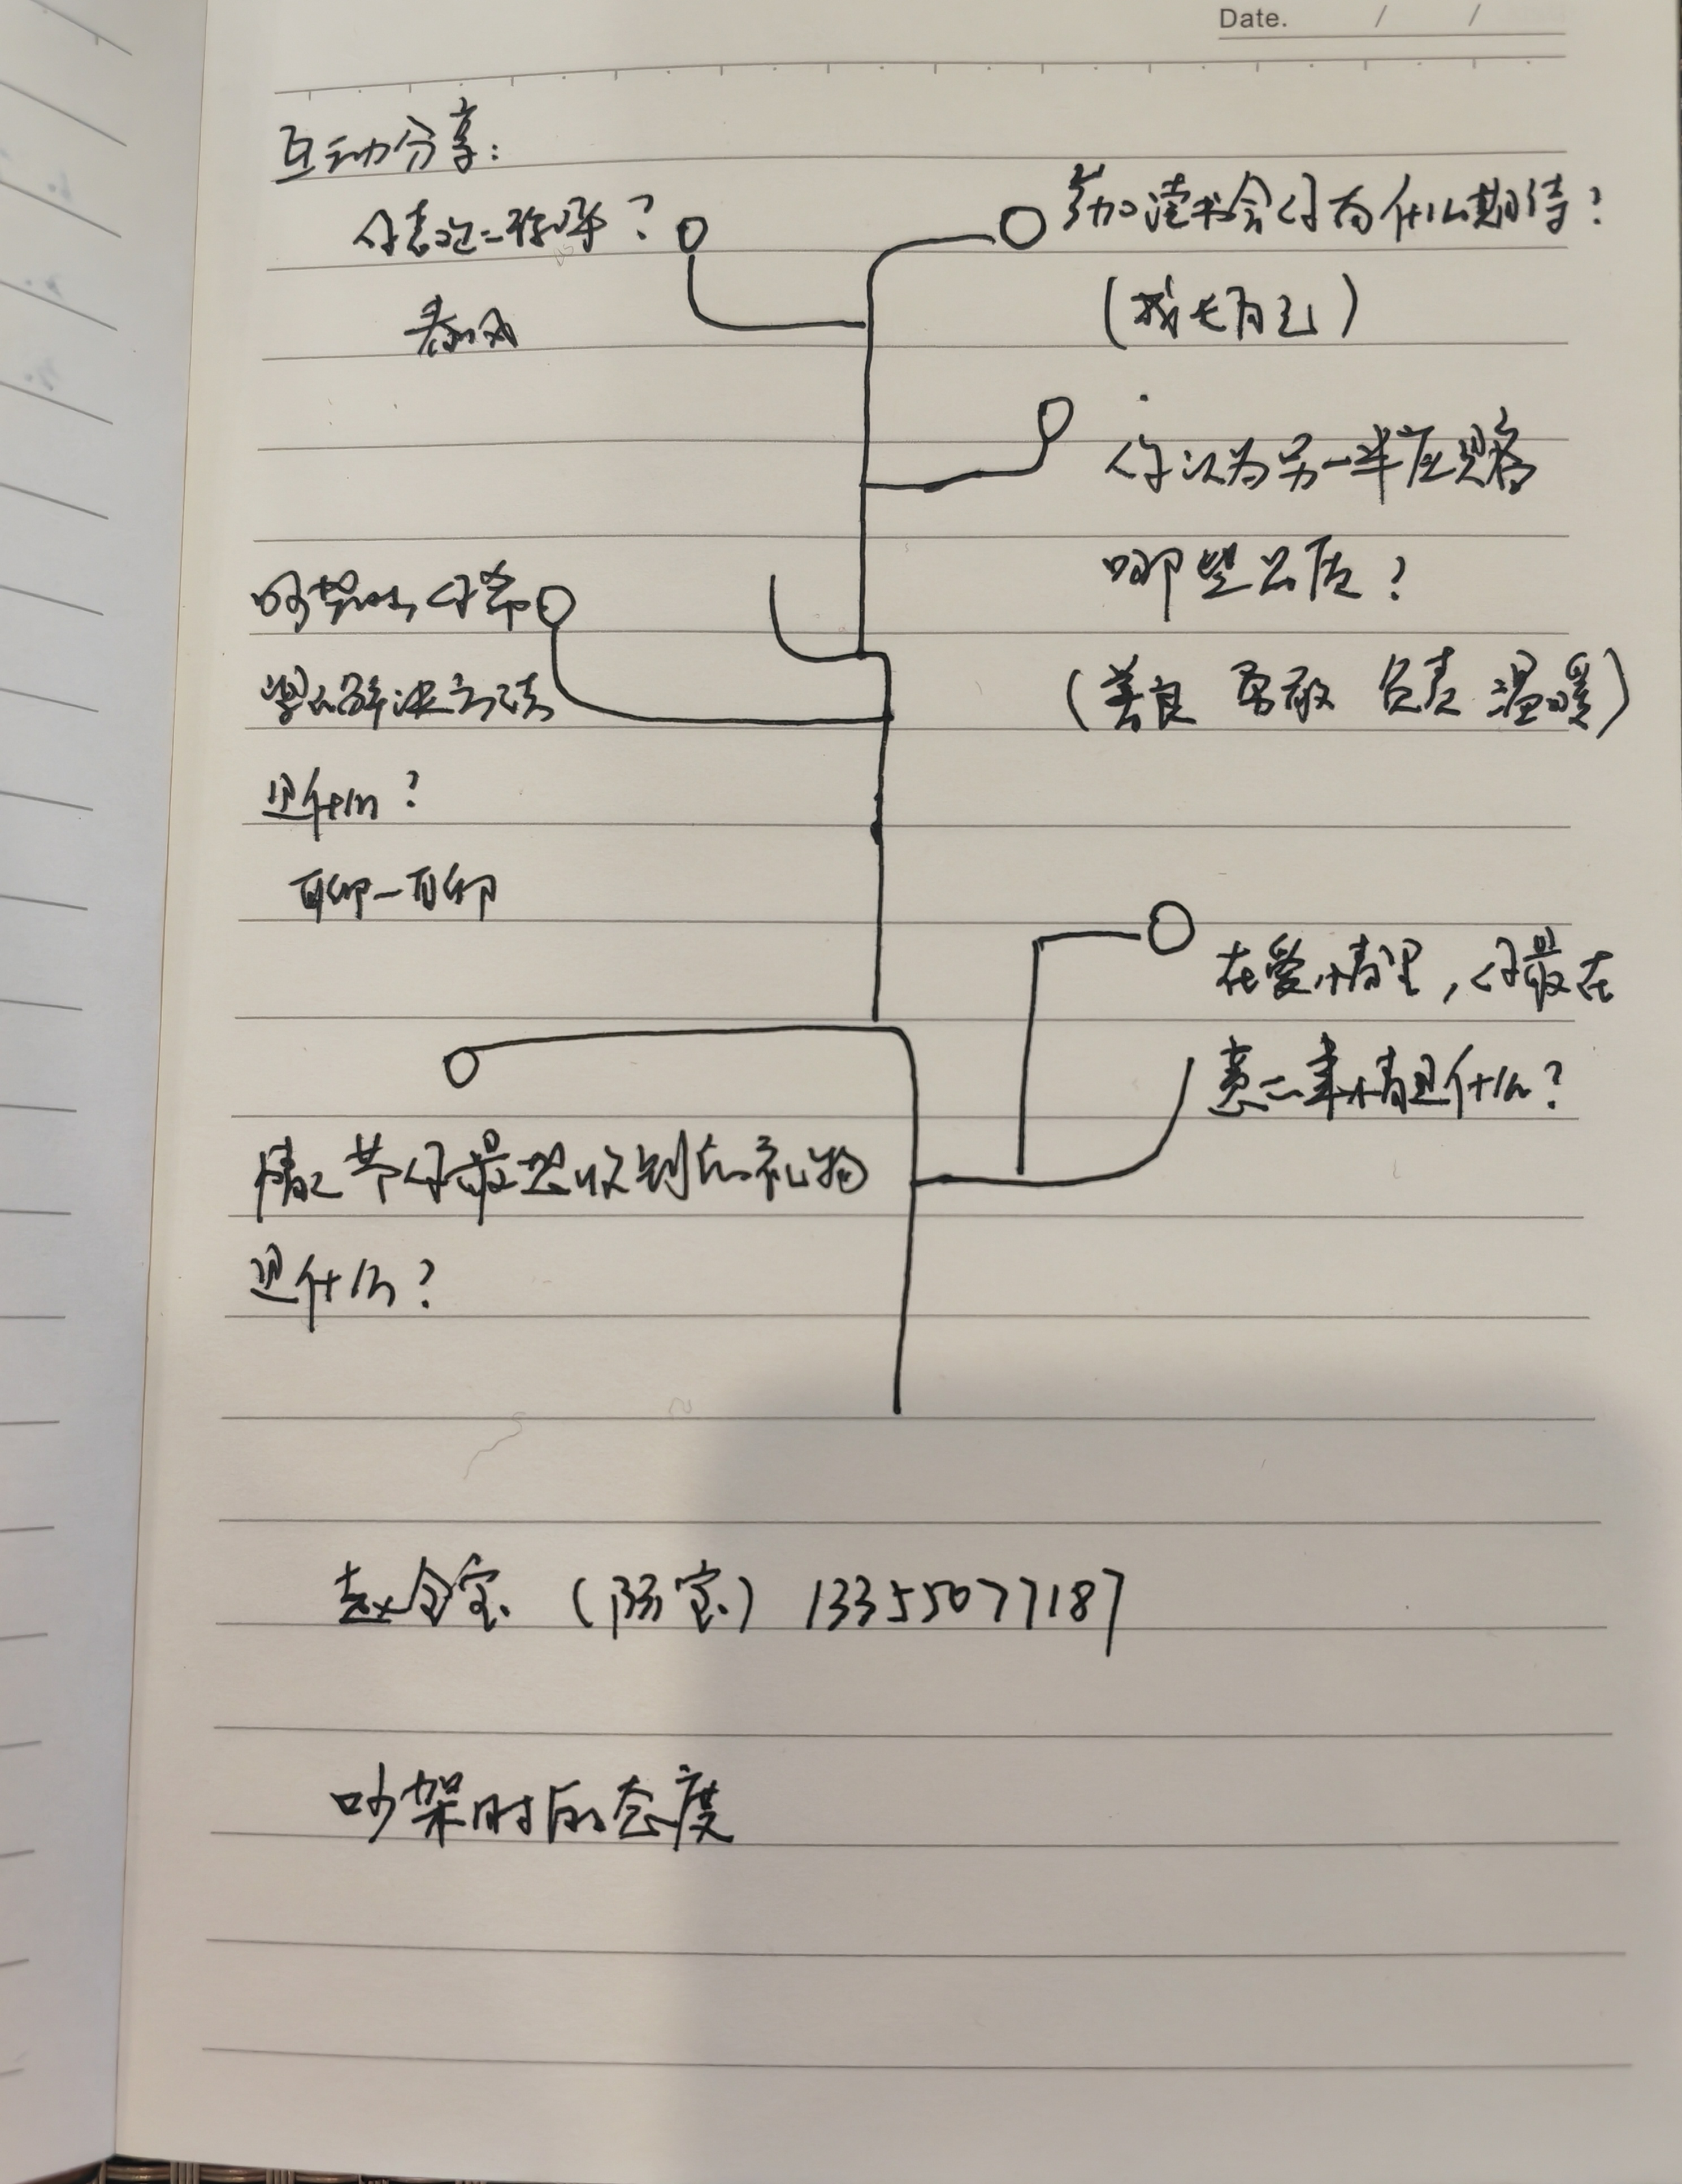 Date. / /
互动分享：
你喜欢的称呼？
春风
参加读书会你有什么期待？
（成长自己）
你认为另一半应具备
哪些品质？
（善良 勇敢 负责 温暖）
吵架时，你希
望的解决方法
是什么？
聊一聊
在爱情里，你最在
意的事情是什么？
情人节你最想收到的礼物
是什么？
赵金宝（阿宝）13355077187
吵架时的态度